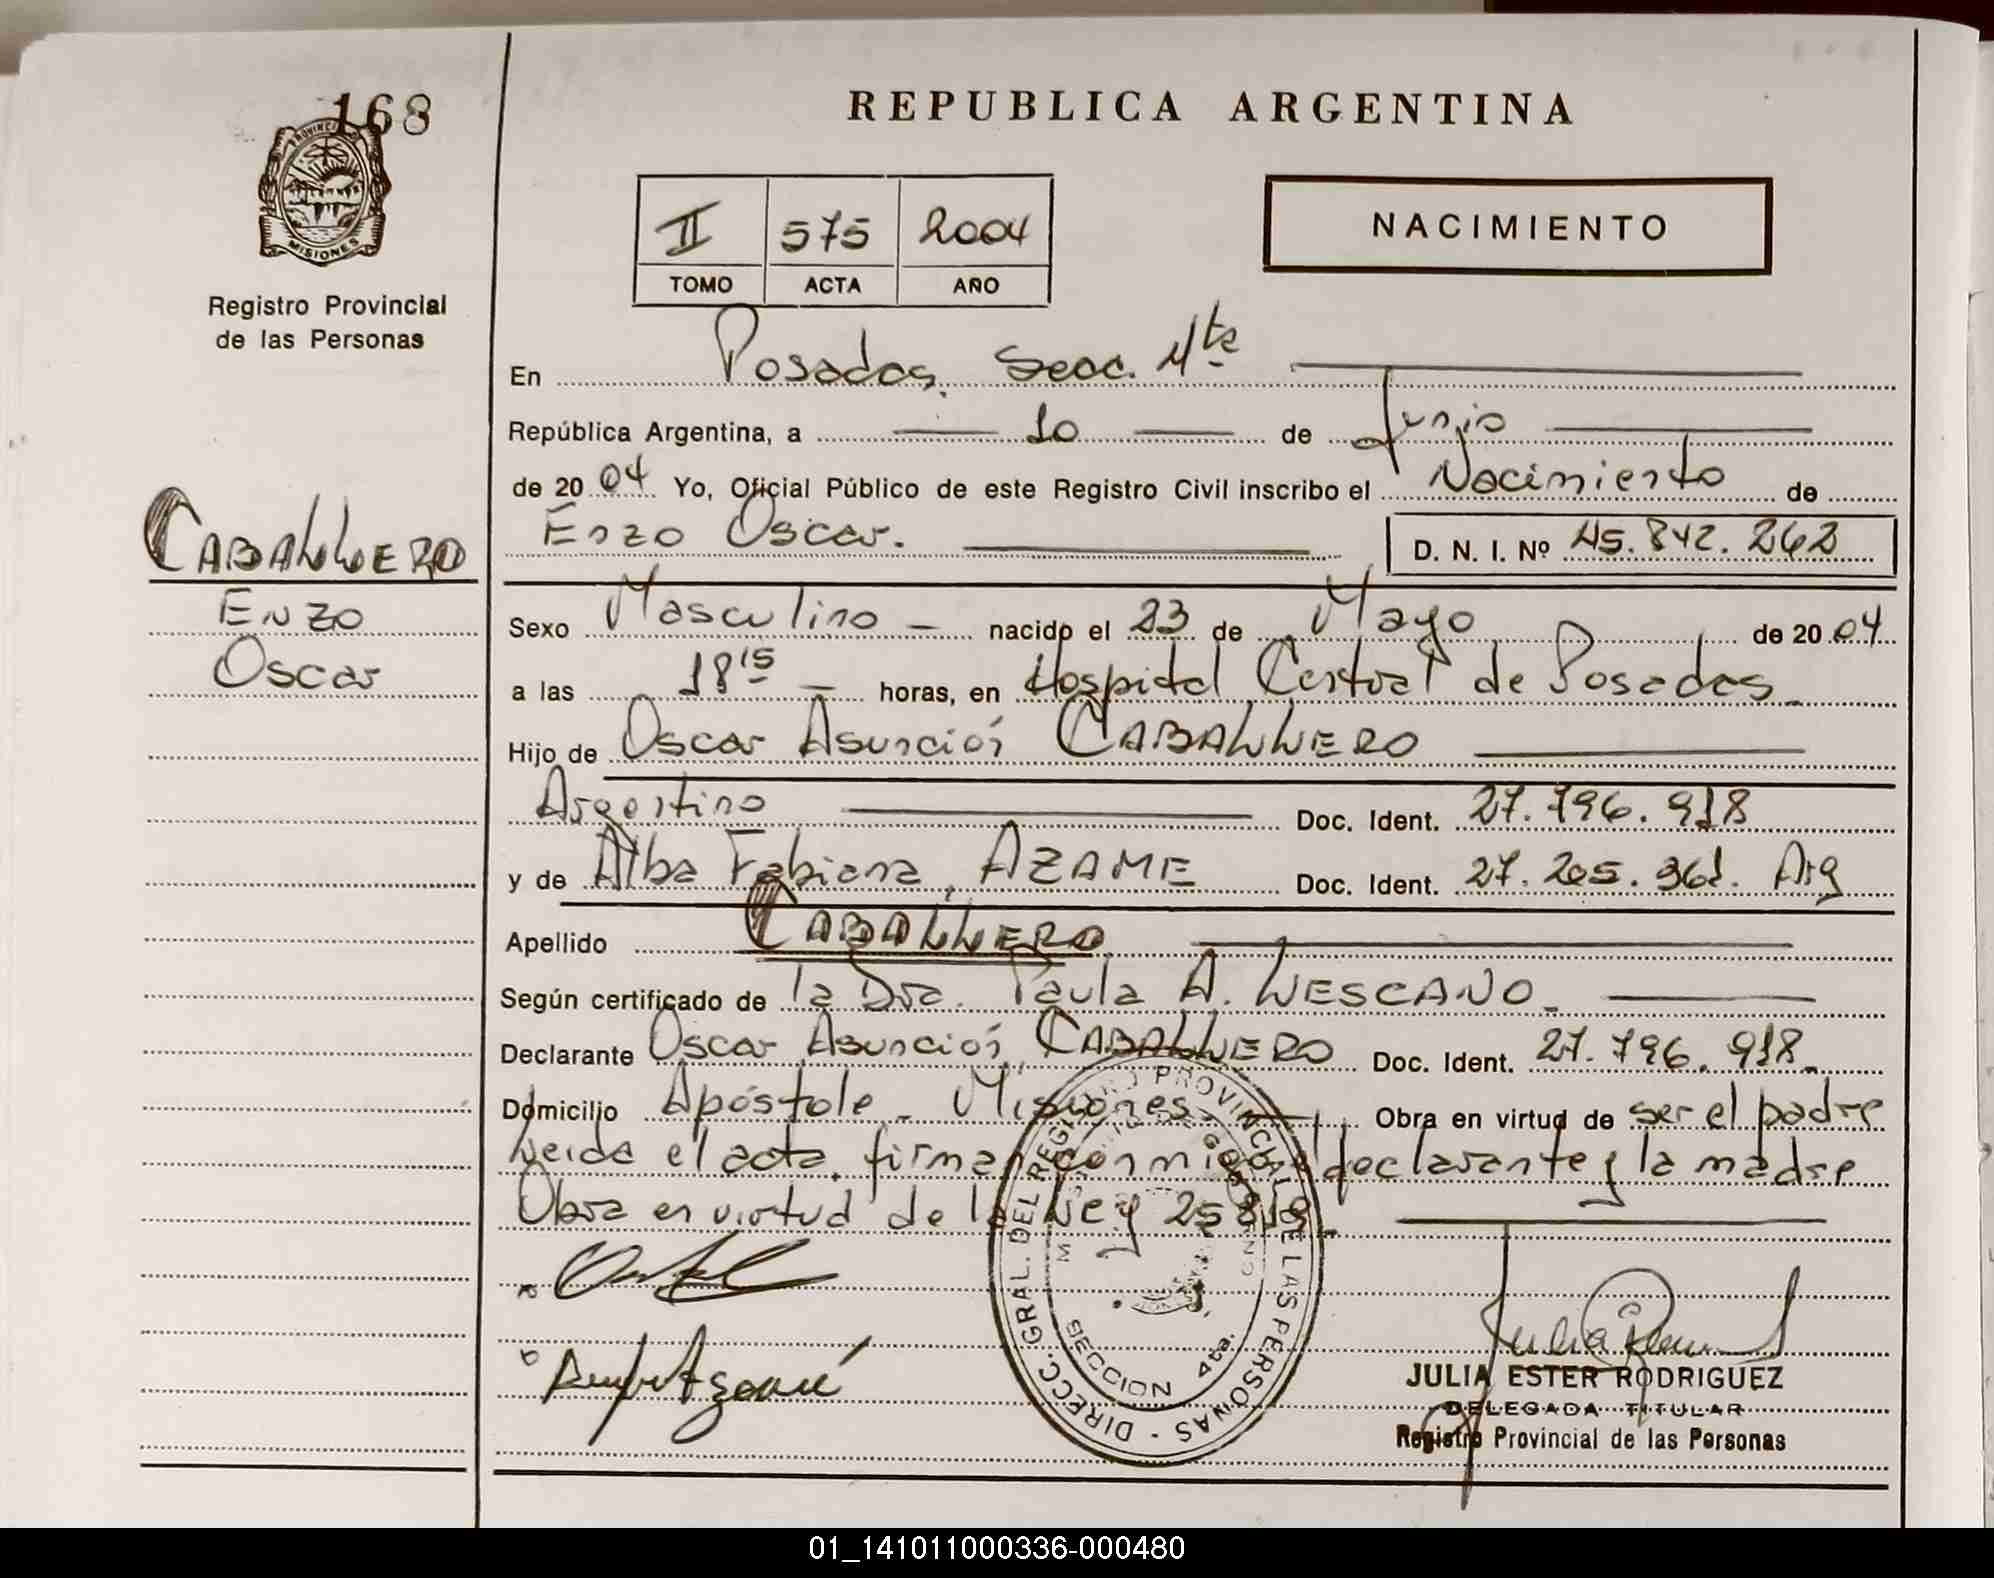 168
PROVINCIA
MISIONES
Registro Provincial
de las Personas
REPUBLICA ARGENTINA
II 575 2004
TOMO ACTA AÑO
NACIMIENTO
En Posadas, Secc. 4ta
República Argentina, a 10 de Junio
de 2004 Yo, Oficial Público de este Registro Civil inscribo el Nacimiento de
Enzo Oscar.
D. N. I. Nº 45.842.262
CABALLERO
Enzo
Oscar
Sexo Masculino nacido el 23 de Mayo de 2004
a las 18 15 horas, en Hospital Central de Posadas
Hijo de Oscar Asunción CABALLERO
Argentino Doc. Ident. 27.796.918
y de Alba Fabiana, AZAME Doc. Ident. 27.205.361. Arg
Apellido CABALLERO
Según certificado de la Dra. Paula A. LESCANO.
Declarante Oscar Asunción CABALLERO Doc. Ident. 27.796.918.
Domicilio Apóstole - Misiones Obra en virtud de ser el padre
Leida el acta, firman conmigo declarante y la madre
Obra en virtud de la Ley 25819.
DIRECC. GRAL. DEL REGISTRO PROVINCIAL DE LAS PERSONAS
SECCION 4ta.
JULIA ESTER RODRIGUEZ
DELEGADA TITULAR
Registro Provincial de las Personas
01_141011000336-000480